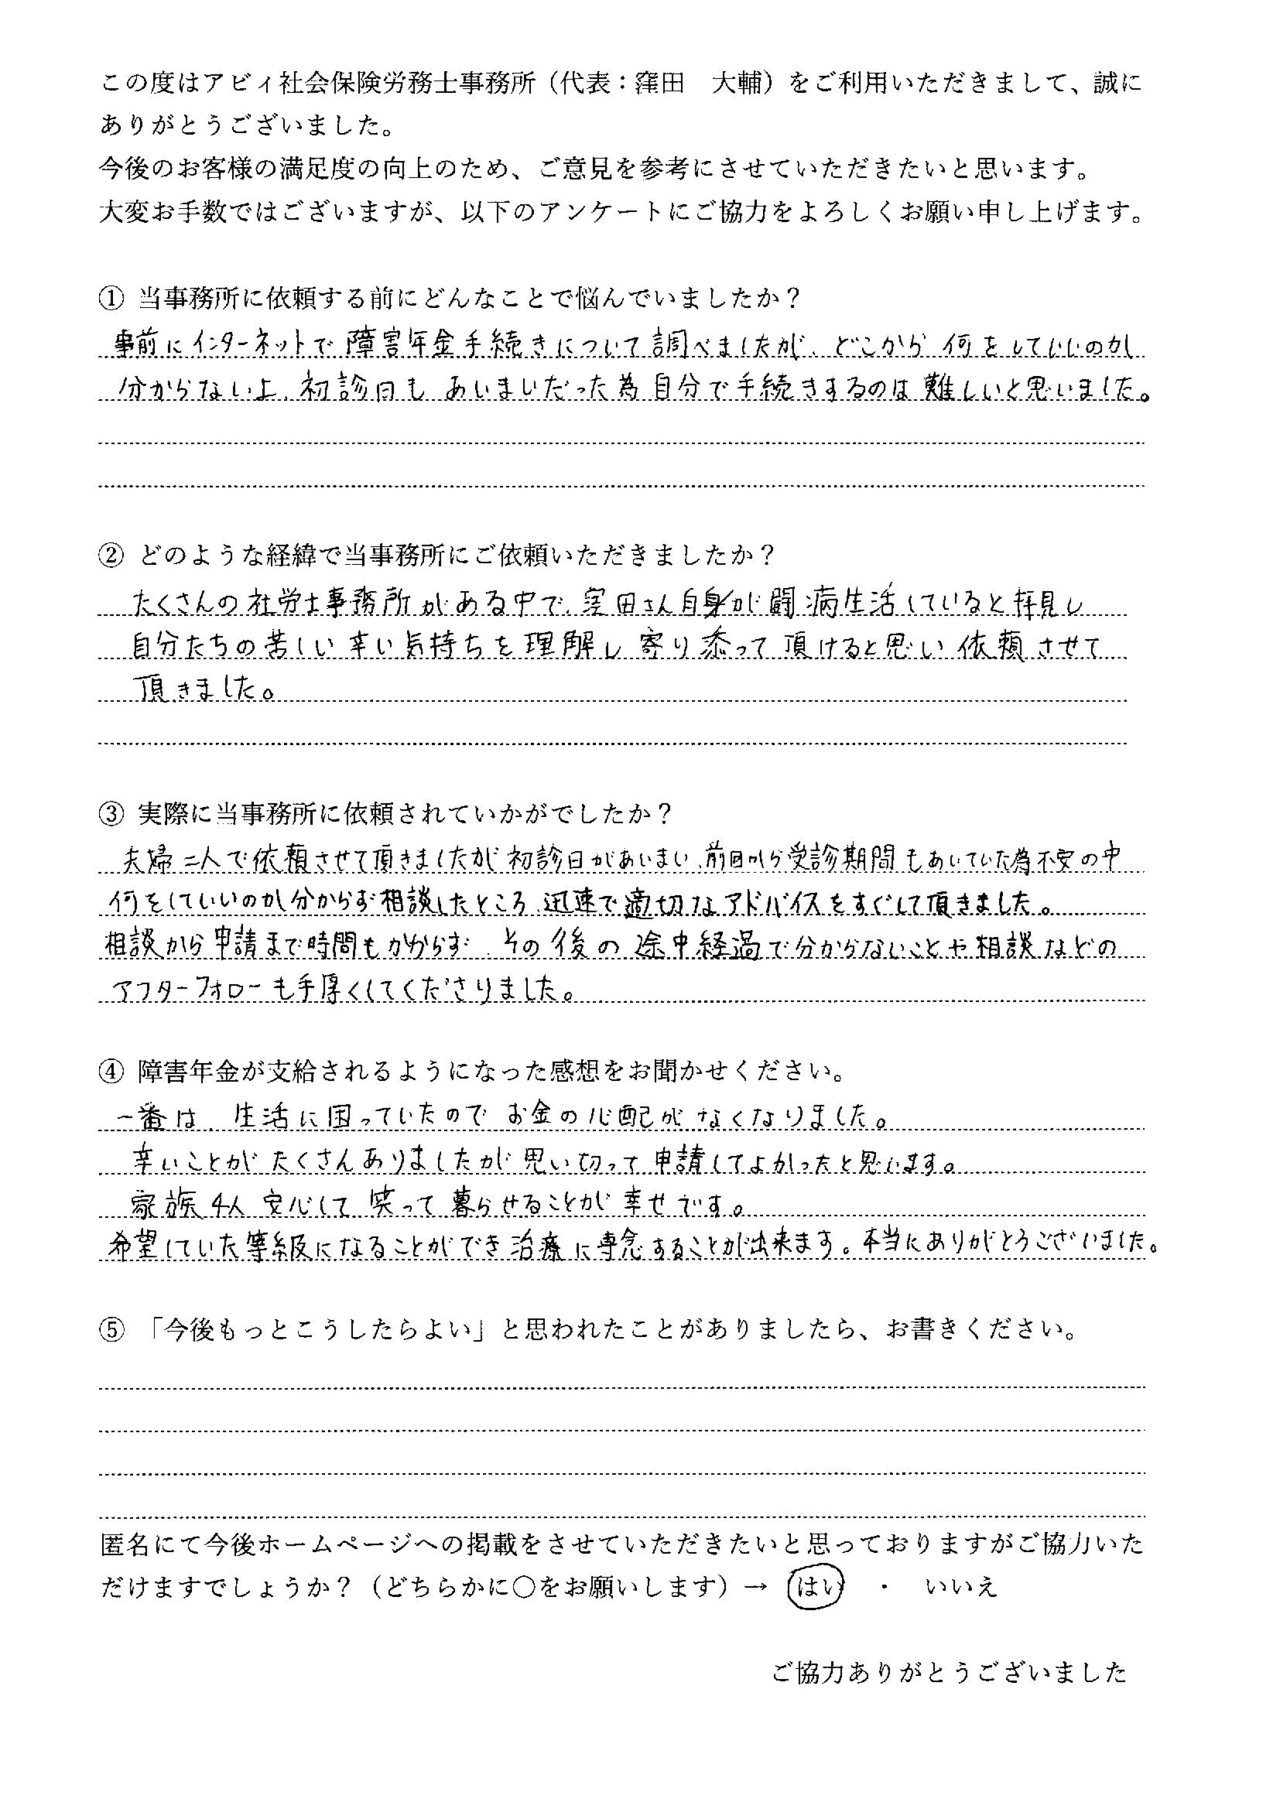 この度はアビィ社会保険労務士事務所（代表：窪田　大輔）をご利用いただきまして、誠に
ありがとうございました。
今後のお客様の満足度の向上のため、ご意見を参考にさせていただきたいと思います。
大変お手数ではございますが、以下のアンケートにご協力をよろしくお願い申し上げます。
① 当事務所に依頼する前にどんなことで悩んでいましたか？
事前にインターネットで障害年金手続きについて調べましたが、どこから何をしていいのか
分からない上、初診日もあいまいだった為自分で手続きするのは難しいと思いました。
② どのような経緯で当事務所にご依頼いただきましたか？
たくさんの社労士事務所がある中で、窪田さん自身が闘病生活していると拝見し
自分たちの苦しい辛い気持ちを理解し寄り添って頂けると思い依頼させて
頂きました。
③ 実際に当事務所に依頼されていかがでしたか？
夫婦二人で依頼させて頂きましたが初診日があいまい、前回から受診期間もあいていた為不安の中
何をしていいのか分からず相談したところ、迅速で適切なアドバイスをすぐして頂きました。
相談から申請まで時間もかからず、その後の途中経過で分からないことや相談などの
アフターフォローも手厚くしてくださりました。
④ 障害年金が支給されるようになった感想をお聞かせください。
一番は、生活に困っていたのでお金の心配がなくなりました。
辛いことがたくさんありましたが思い切って申請してよかったと思います。
家族4人安心して笑って暮らせることが幸せです。
希望していた等級になることができ治療に専念することが出来ます。本当にありがとうございました。
⑤ 「今後もっとこうしたらよい」と思われたことがありましたら、お書きください。
匿名にて今後ホームページへの掲載をさせていただきたいと思っておりますがご協力いた
だけますでしょうか？（どちらかに○をお願いします）→　はい　・　いいえ
ご協力ありがとうございました